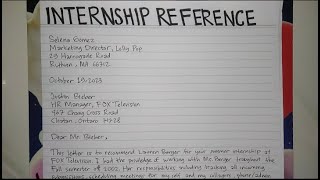 INTERNSHIP REFERENCE
Selena Gomez
Marketing Director, Lolly Pop
23 Harrogate Road
Rutham, MA
October 15/2023
Justin Bieber
HR Manager, FOX Television
Chang Cross Road
Clinton, Ontario
Dear Mr. Bieber,
This letter is to recommend Lauren Berger for your summer internship at
FOX Television. I had the privilege of working with Ms. Berger throughout the
Fall semester of 2000. Her responsibilities including tracking all incoming
scheduling meetings for my and my